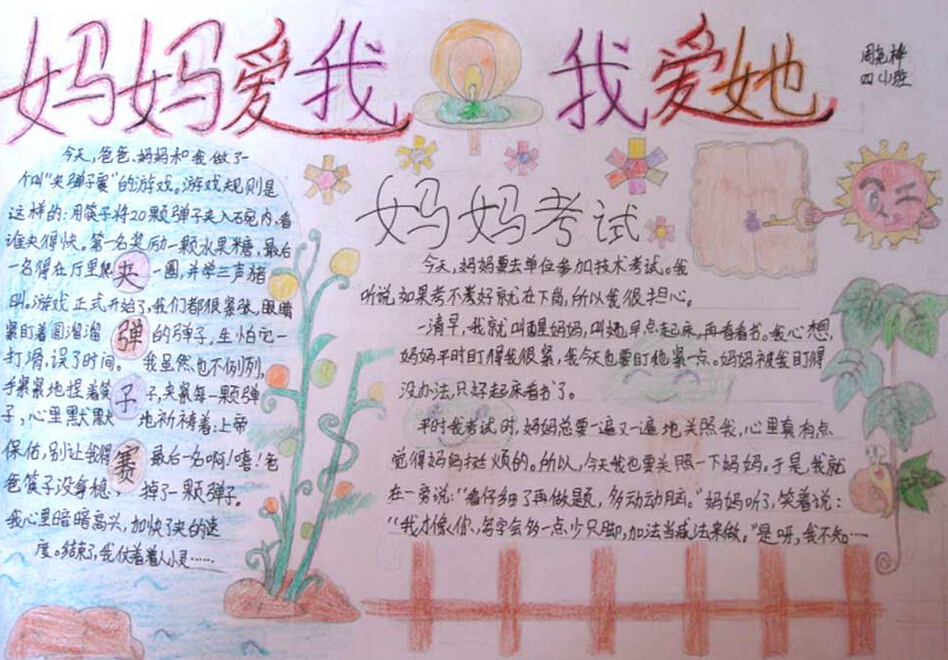 妈妈爱我 我爱她
四(1)班
今天,爸爸、妈妈和我做了一
个叫“夹弹子赛”的游戏。游戏规则是
这样的:用筷子将20颗弹子夹入碗内,看
谁夹得快。第一名奖励一颗水果糖,最后
一名得在厅里爬一圈,并学三声猪
叫。游戏正式开始了,我们都很紧张,眼睛
紧盯着圆溜溜的弹子,生怕它一
打滑,误了时间。我虽然也不例列,
手紧紧地捏着筷子,夹紧每一颗弹
子,心里默默地祈祷着:上帝
保佑,别让我得最后一名啊!嘻!爸
爸筷子没身稳,掉了一颗弹子。
我心里暗暗高兴,加快了夹的速
度。结束了,我仗着着人小灵……
夹
弹
子
赛
妈妈考试
今天,妈妈要去单位参加技术考试。我
听说,如果考不考好就在下岗,所以我很担心。
一清早,我就叫醒妈妈,叫她早点起床,再看看书。我心想,
妈妈平时盯得我很紧,我今天也要盯她紧一点。妈妈被我盯得
没办法,只好起床看书了。
平时我考试时,妈妈总要一遍又一遍地关照我,心里真有点
觉得妈妈挺烦的。所以,今天我也要关照一下妈妈。于是,我就
在一旁说:“看仔细了再做题,多动动脑。”妈妈听了,笑着说:
“我才像你,写字会多一点少只脚,加法当减法来做。”是呀,我不知……